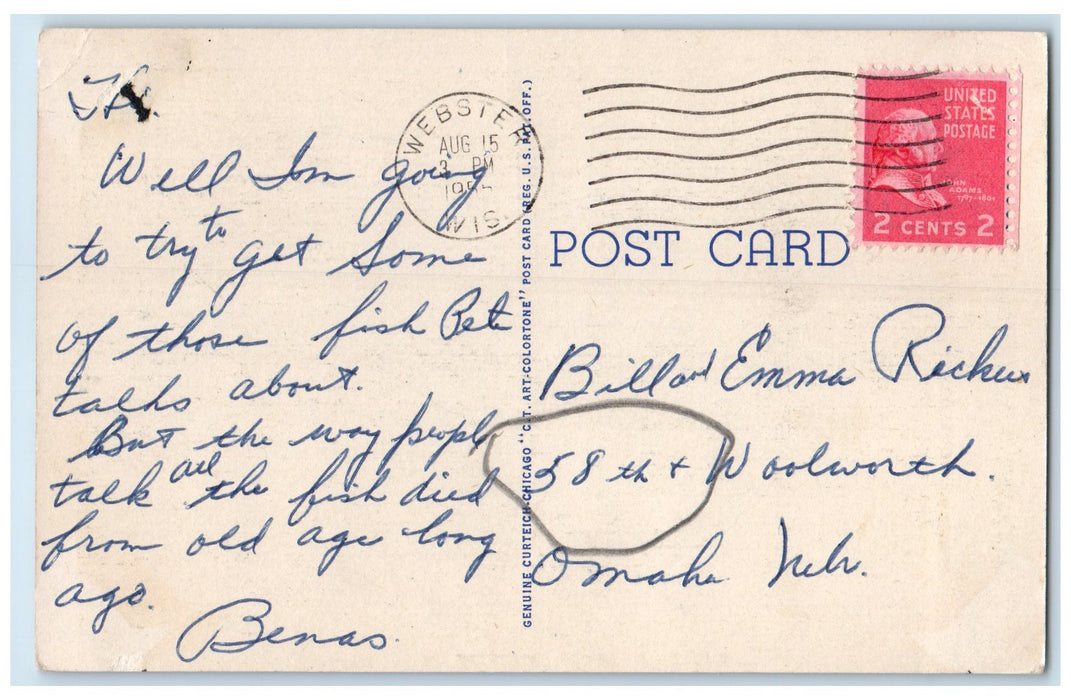 Hi.
Well Im going
to try to get Some
of those fish Pete
talks about.
But the way people
talk all the fish died
from old age long
ago.
Benas.
WEBSTER
AUG 15
3 PM
WIS.
GENUINE CURTEICH-CHICAGO "C.T. ART-COLORTONE" POST CARD (REG. U.S. PAT. OFF.)
UNITED
STATES
POSTAGE
JOHN
ADAMS
1797-1801
2 CENTS 2
POST CARD
Bill and Emma
58 th + Woolworth.
Omaha Nebr.